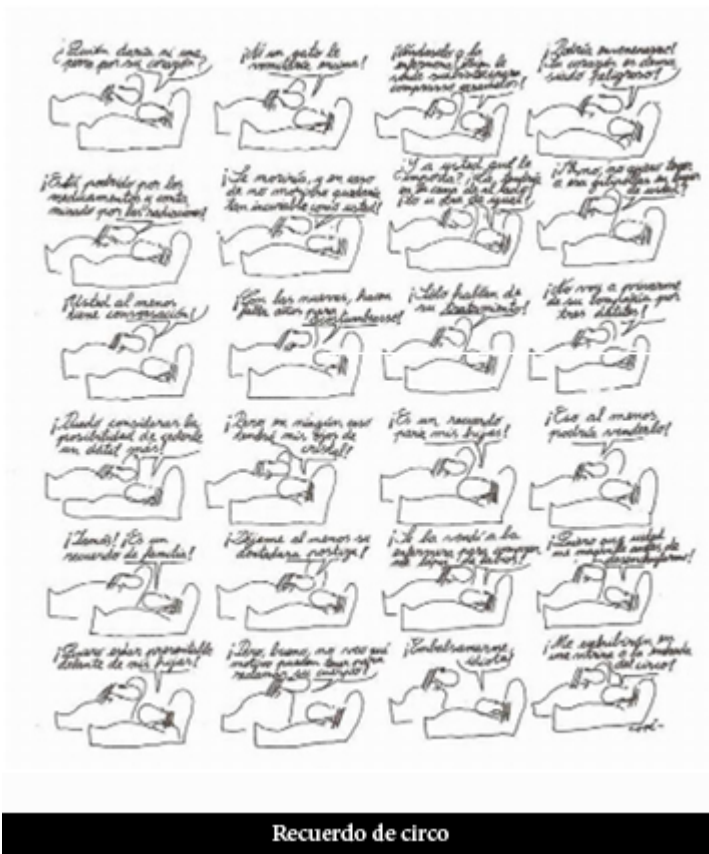 ¿Quién daría ni una
perra por su corazón?
¡Ni un gato le
¡Véndaselo a la
enfermera!
¡Podría envenenarse!
¡Su corazón es dema-
siado peligroso!
¡Está podrido por los
medicamentos y conta-
minado por las radiaciones!
¡Se moriría, y en caso
de no morirse quedaría
tan incurable como usted!
¿Y a usted qué le
importa? ¡La tendría
en la cama de al lado!
¡Ella u otra da igual!
¡Ah, no, no quiero tener
a esa gilipollas en lugar
de usted!
¡Usted al menos
tiene conversación!
¡Con las nuevas, hacen
falta años para
acostumbrarse!
¡Sólo hablan de
su tratamiento!
¡No voy a privarme
de su compañía por
tres dátiles!
¡Puedo considerar la
posibilidad de cederle
un dátil más!
¡Pero en ningún caso
tendrá mis ojos de
cristal!
¡Es un recuerdo
para mis hijas!
¡Eso al menos
podría venderlo!
¡Jamás! ¡Es un
recuerdo de familia!
¡Déjeme al menos su
dentadura postiza!
¡Se la vendí a la
enfermera para comprar
¡Quiero que usted
me maquille antes de
¡Quiero estar presentable
delante de mis hijas!
¡Pero, bueno, no veo qué
motivo pueden tener para
reclamar su cuerpo!
¡Embalsamarme,
idiota!
¡Me exhibirán en
una vitrina a la entrada
del circo!
Recuerdo de circo